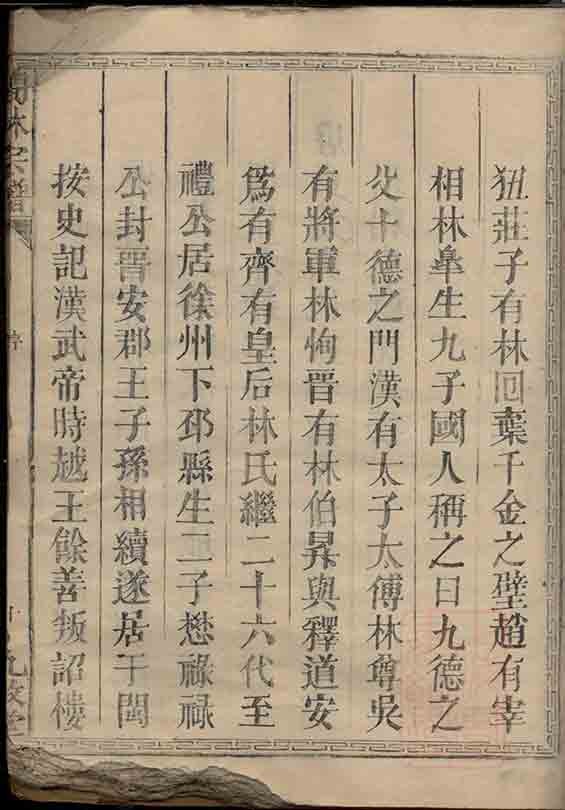 狃莊子有林回棄千金之璧趙有宰
相林臯生九子國人稱之曰九德之
父十德之門漢有太子太傅林尊吳
有將軍林恂晋有林伯昇與釋道安
爲有齊有皇后林氏繼二十六代至
禮公居徐州下邳縣生二子懋祿祿
公封晋安郡王子孫相續遂居于閩
按史記漢武帝時越王餘善叛詔樓
林宗譜
序